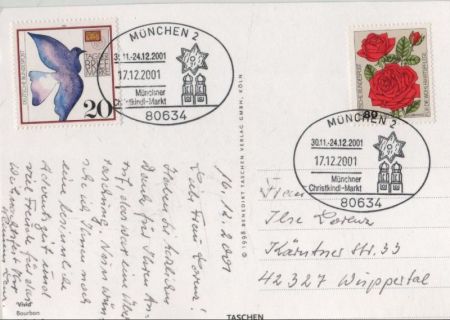 MÜNCHEN 2
30.11.-24.12.2001
17.12.2001
Münchner
Christkindl-Markt
80634
DEUTSCHE BUNDESPOST
20
MÜNCHEN 2
30.11.-24.12.2001
17.12.2001
Münchner
Christkindl-Markt
80634
DEUTSCHE BUNDESPOST
80
16.12.2001
Liebe Frau Lorenz!
Haben Sie herzlichen
Dank für Ihren An-
ruf, das war eine Über
raschung. Nun wün-
sche ich Ihnen noch
eine besinnliche
Adventszeit und
viel Freude
Frau
Ilse Lorenz
Kärntner Str. 33
42327 Wuppertal
© 1998 BENEDIKT TASCHEN VERLAG GMBH, KÖLN
Bourbon
TASCHEN